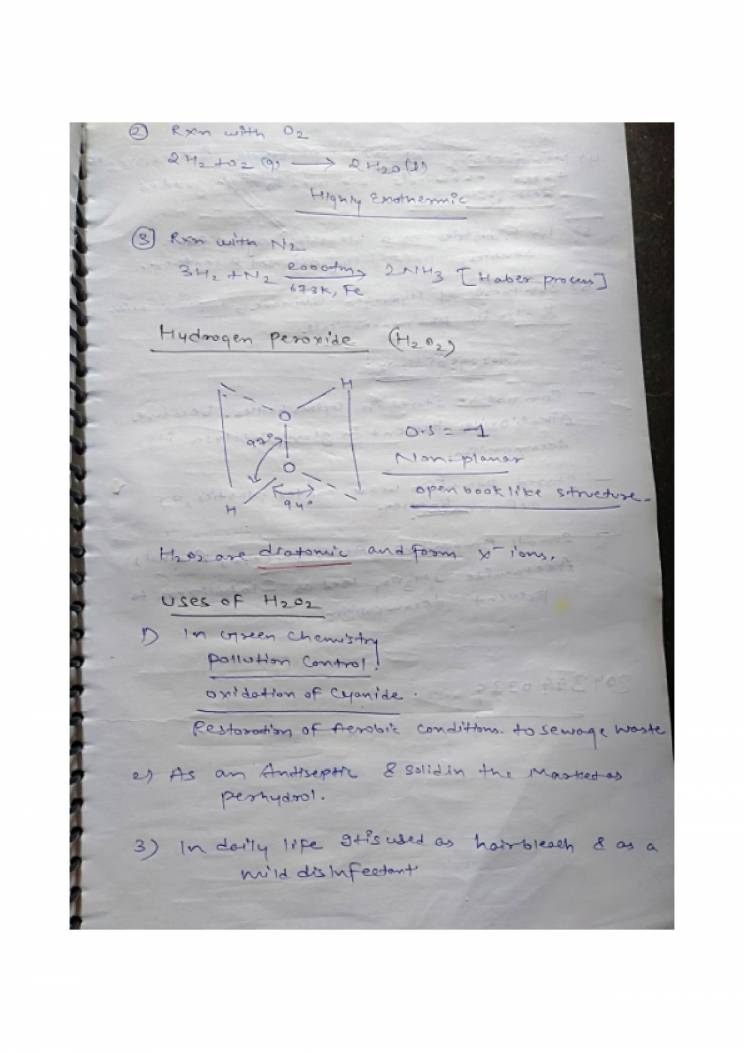 ② Rxn with O2
2H2 + O2 (g) ⟶ 2H2O (l)
Highly Exothermic
③ Rxn with N2
3H2 + N2 200atm, 673K, Fe ⟶ 2NH3 [Haber process]
Hydrogen peroxide (H2O2)
H
O
O
94°
H
O.S = -1
Non-planar
open book like structure.
H2O2 are diatomic and form x⁻ ions.
Uses of H2O2
1) In Green Chemistry
Pollution Control.
oxidation of Cyanide.
Restoration of Aerobic conditions to sewage waste
2) As an Antiseptic & sold in the Market as
perhydrol.
3) In daily life It is used as hairbleach & as a
mild disinfectant